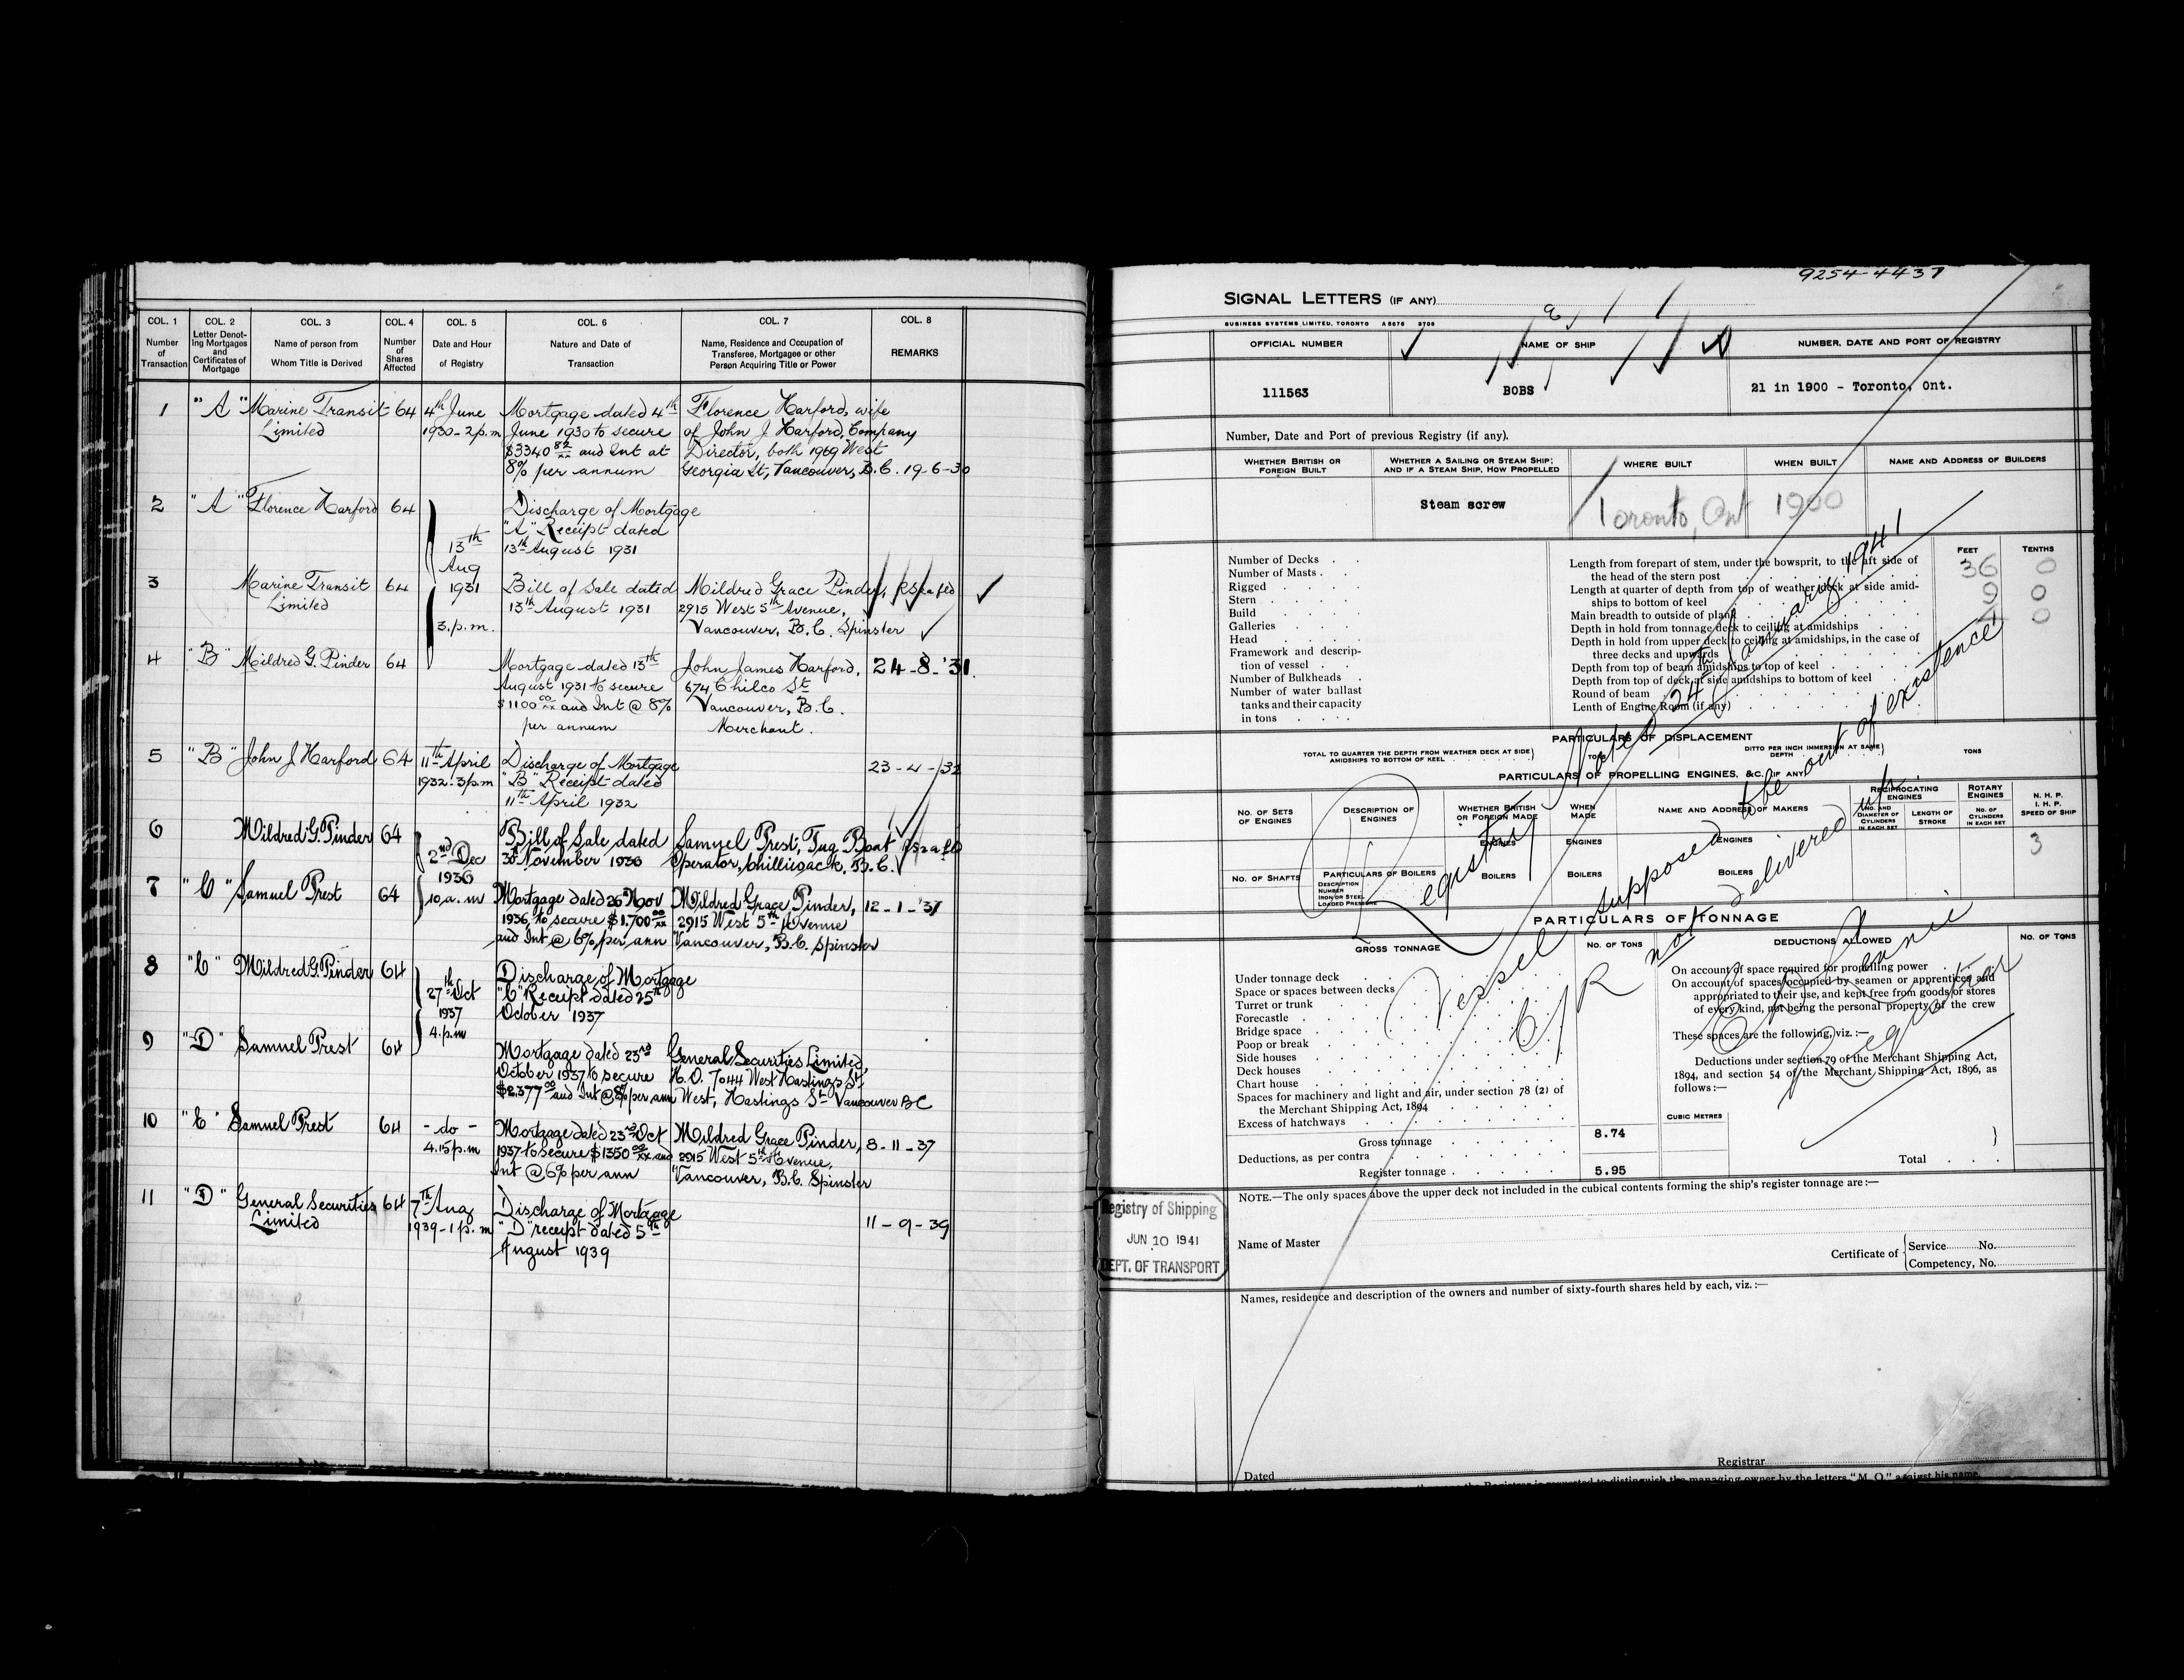 COL. 1 COL. 2 COL. 3 COL. 4 COL. 5 COL. 6 COL. 7 COL. 8
Number of Transaction
Letter Denoting Mortgages and Certificates of Mortgage
Name of person from Whom Title is Derived
Number of Shares Affected
Date and Hour of Registry
Nature and Date of Transaction
Name, Residence and Occupation of Transferee, Mortgagee or other Person Acquiring Title or Power
REMARKS
1 "A" Marine Transit 64 4th June Mortgage dated 4th Florence Harford, wife
Limited 1930-2p.m June 1930 to secure of John J Harford, Company
$3340 82/xx and Int at Director, both 1969 West
8% per annum Georgia St, Vancouver, B.C. 19-6-30
2 "A" Florence Harford 64 Discharge of Mortgage
"A" Receipt dated
13th 13th August 1931
Aug
3 Marine Transit 64 1931 Bill of Sale dated Mildred Grace Pinder,
Limited 13th August 1931 2915 West 5th Avenue,
3.p.m. Vancouver, B.C. Spinster
4 "B" Mildred G. Pinder 64 Mortgage dated 13th John James Harford, 24-8-'31.
August 1931 to secure 674 Chilco St
$1100 00/xx and Int @ 8% Vancouver, B.C.
per annum Merchant.
5 "B" John J Harford 64 11th April Discharge of Mortgage 23-4-/32
1932-3p.m "B" Receipt dated
11th April 1932
6 Mildred G. Pinder 64 Bill of Sale dated Samuel Prest, Tug Boat
2nd Dec 30th November 1936 Operator, Chilliwack, B.C.
1936
7 "C" Samuel Prest 64 10.a.m Mortgage dated 26th Nov Mildred Grace Pinder, 12-1-'37
1936, to secure $1.700 00/xx 2915 West 5th Avenue
and Int @ 6% per ann Vancouver, B.C. Spinster
8 "C" Mildred G. Pinder 64 Discharge of Mortgage
27th Oct "C" Receipt dated 25th
1937 October 1937
4.p.m
9 "D" Samuel Prest 64 Mortgage dated 23rd General Securities Limited,
October 1937 to secure H.O. 7044 West Hastings St.
$2.377 00 and Int @ 8% per ann West, Hastings St Vancouver BC
10 "E" Samuel Prest 64 - do - Mortgage dated 23rd Oct Mildred Grace Pinder, 8-11-37
4.15p.m 1937 to secure $1350 00/xx and 2915 West 5th Avenue,
Int @ 6% per ann Vancouver, B.C. Spinster
11 "D" General Securities 64 7th Aug Discharge of Mortgage
Limited 1939-1p.m "D" receipt dated 5th 11-9-39
August 1939
9254-4437
SIGNAL LETTERS (IF ANY)
BUSINESS SYSTEMS LIMITED, TORONTO
OFFICIAL NUMBER NAME OF SHIP NUMBER, DATE AND PORT OF REGISTRY
111563 BOBS 21 in 1900 - Toronto, Ont.
Number, Date and Port of previous Registry (if any).
WHETHER BRITISH OR FOREIGN BUILT
WHETHER A SAILING OR STEAM SHIP; AND IF A STEAM SHIP, HOW PROPELLED
WHERE BUILT
WHEN BUILT
NAME AND ADDRESS OF BUILDERS
Steam screw Toronto, Ont 1900
FEET TENTHS
Number of Decks
Number of Masts
Rigged
Stern
Build
Galleries
Head
Framework and description of vessel
Number of Bulkheads
Number of water ballast tanks and their capacity in tons
Length from forepart of stem, under the bowsprit, to the aft side of the head of the stern post 36 0
Length at quarter of depth from top of weather deck at side amidships to bottom of keel
Main breadth to outside of plank 9 0
Depth in hold from tonnage deck to ceiling at amidships 0
Depth in hold from upper deck to ceiling at amidships, in the case of three decks and upwards
Depth from top of beam amidships to top of keel
Depth from top of deck at side amidships to bottom of keel
Round of beam
Lenth of Engine Room (if any)
PARTICULARS OF DISPLACEMENT
TOTAL TO QUARTER THE DEPTH FROM WEATHER DECK AT SIDE AMIDSHIPS TO BOTTOM OF KEEL TONS
DITTO PER INCH IMMERSION AT SAME DEPTH TONS
PARTICULARS OF PROPELLING ENGINES, &C. (IF ANY)
NO. OF SETS OF ENGINES
DESCRIPTION OF ENGINES
WHETHER BRITISH OR FOREIGN MADE
WHEN MADE
NAME AND ADDRESS OF MAKERS
RECIPROCATING ENGINES
NO. AND DIAMETER OF CYLINDERS IN EACH SET
LENGTH OF STROKE
ROTARY ENGINES
NO. OF CYLINDERS IN EACH SET
N. H. P.
I. H. P.
SPEED OF SHIP
ENGINES ENGINES ENGINES 3
NO. OF SHAFTS PARTICULARS OF BOILERS BOILERS BOILERS BOILERS
DESCRIPTION
NUMBER
IRON OR STEEL
LOADED PRESSURE
Registry closed 24th January 1941
Vessel supposed to be out of existence
C/R not delivered up.
Registrar
PARTICULARS OF TONNAGE
GROSS TONNAGE NO. OF TONS DEDUCTIONS ALLOWED NO. OF TONS
Under tonnage deck
Space or spaces between decks
Turret or trunk
Forecastle
Bridge space
Poop or break
Side houses
Deck houses
Chart house
Spaces for machinery and light and air, under section 78 (2) of the Merchant Shipping Act, 1894
Excess of hatchways
Gross tonnage 8.74
Deductions, as per contra
Register tonnage 5.95
On account of space required for propelling power
On account of spaces occupied by seamen or apprentices and appropriated to their use, and kept free from goods or stores of every kind, not being the personal property of the crew
These spaces are the following, viz.:—
Deductions under section 79 of the Merchant Shipping Act, 1894, and section 54 of the Merchant Shipping Act, 1896, as follows:—
CUBIC METRES
Total
NOTE.—The only spaces above the upper deck not included in the cubical contents forming the ship's register tonnage are:—
Registry of Shipping
JUN 10 1941
DEPT. OF TRANSPORT
Name of Master
Certificate of Service No.
Competency, No.
Names, residence and description of the owners and number of sixty-fourth shares held by each, viz.:—
Registrar
Dated